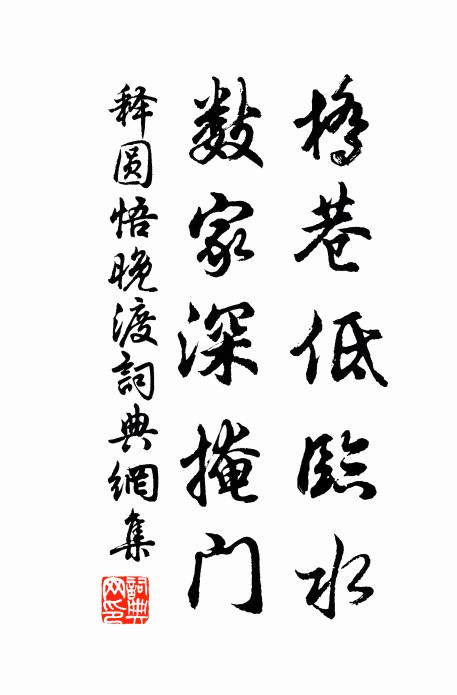 橋巷低臨水
數家深掩門
释圆悟晚渡詞典網集
詞典網印